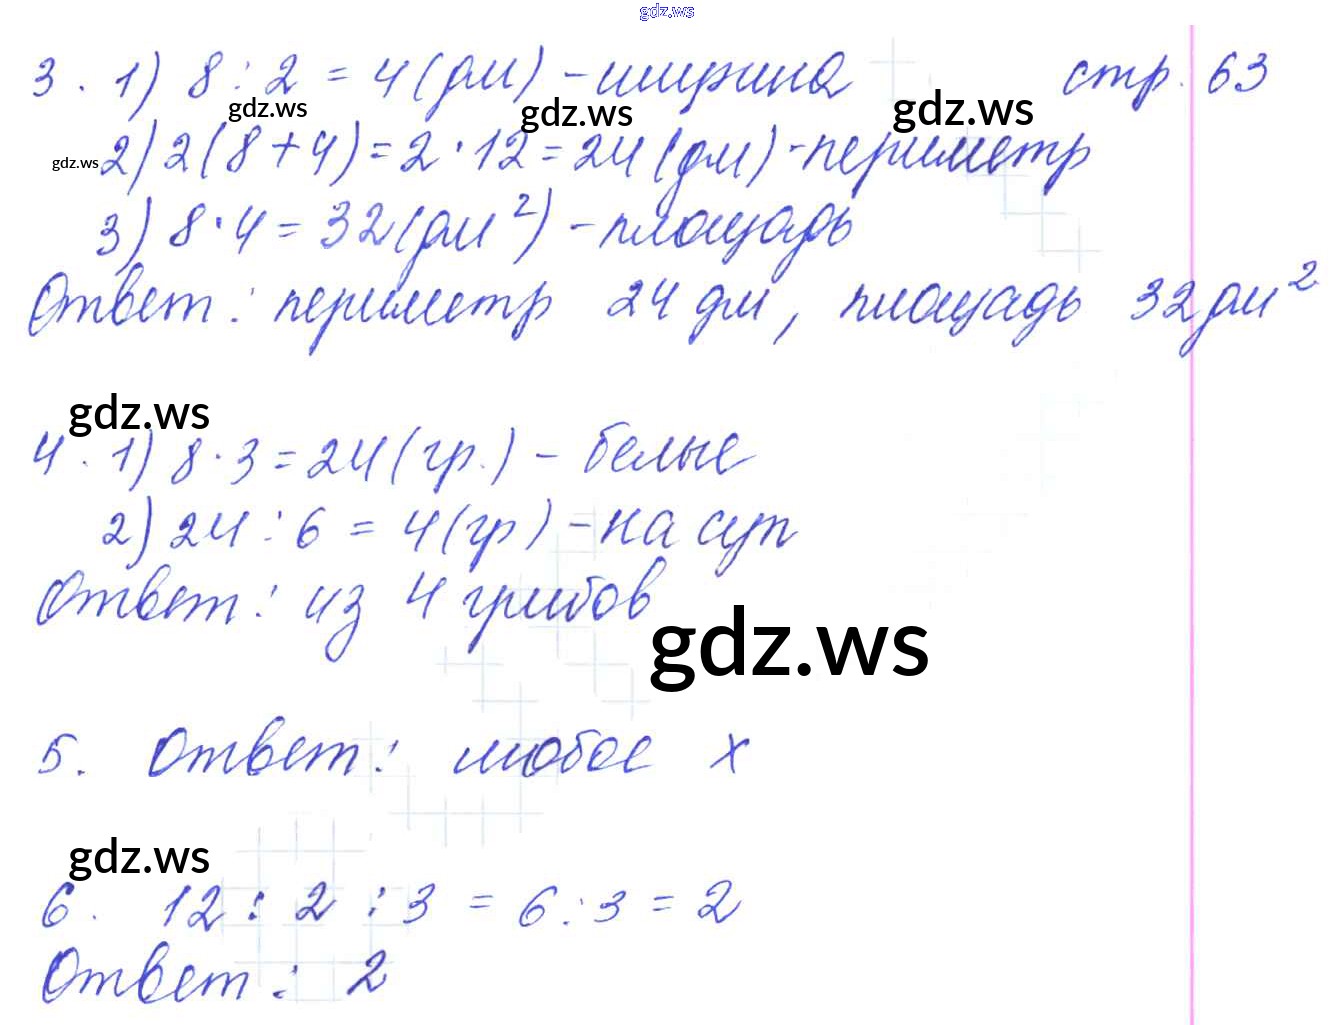 gdz.ws
3. 1) 8 : 2 = 4 (дм) - ширина стр. 63
gdz.ws gdz.ws gdz.ws
gdz.ws 2) 2(8+4) = 2 · 12 = 24 (дм) - периметр
3) 8 · 4 = 32 (дм²) - площадь
Ответ: периметр 24 дм, площадь 32 дм²
gdz.ws
4. 1) 8 · 3 = 24 (гр.) - белые
2) 24 : 6 = 4 (гр) - на суп
Ответ: из 4 грибов
gdz.ws
5. Ответ: любое x
gdz.ws
6. 12 : 2 : 3 = 6 : 3 = 2
Ответ: 2